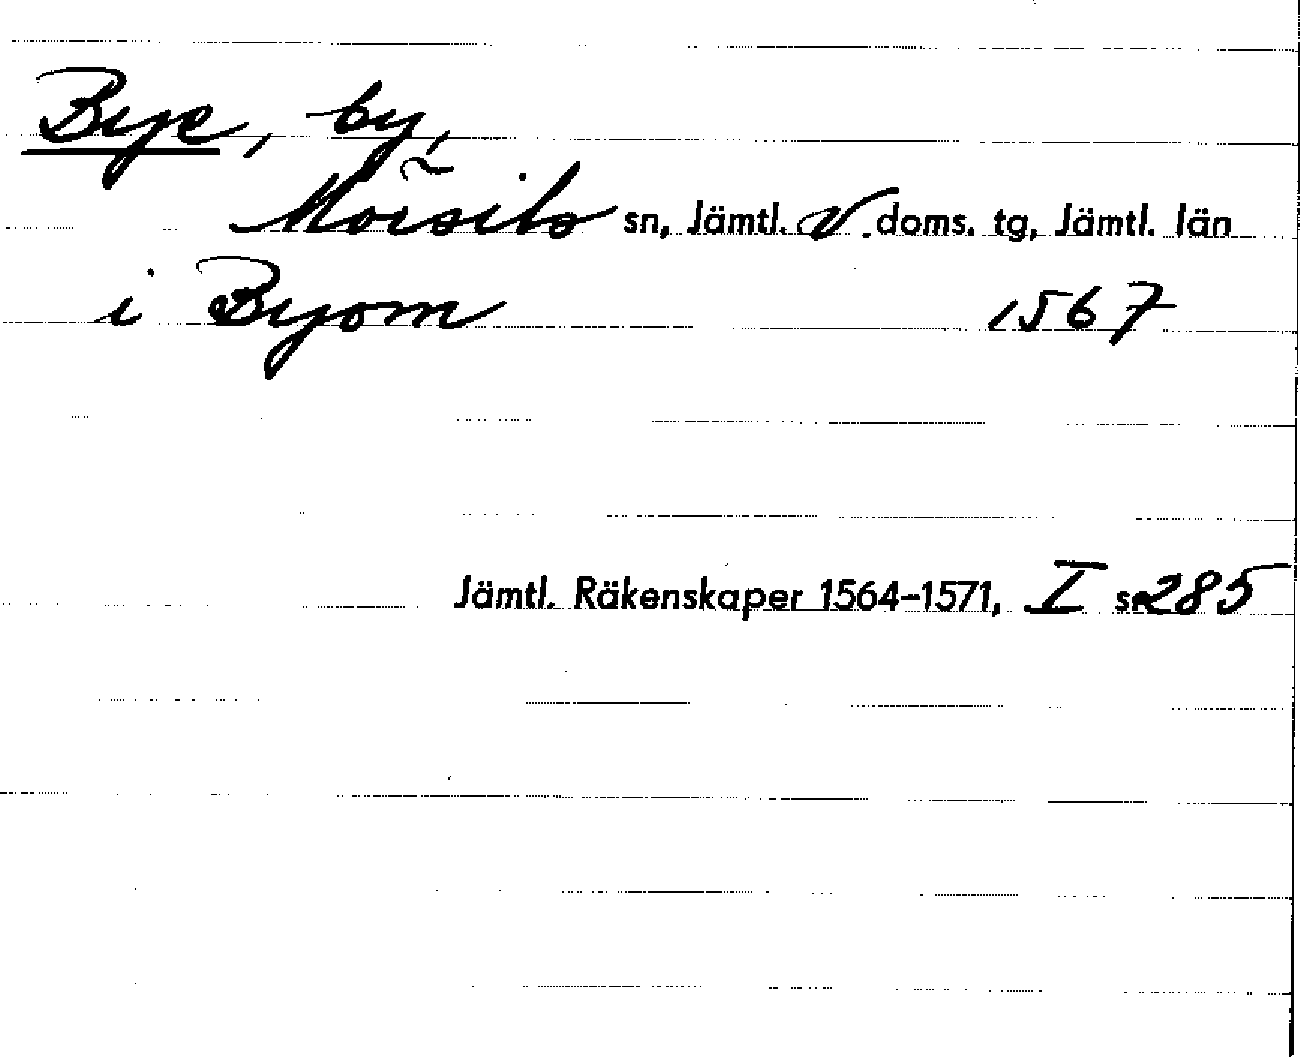 Bye, by,
Mörsils sn, Jämtl. V. doms. tg, Jämtl. län
i Byom 1567
Jämtl. Räkenskaper 1564-1571, I s. 285